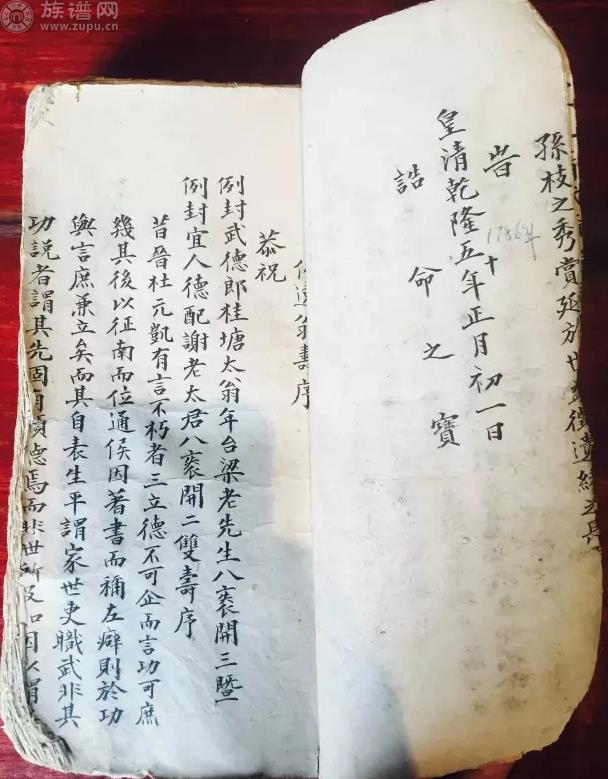 族谱网
www.zupu.cn
孫枝之秀賞延於世
皇清乾隆五十年正月初一日
1786年
誥命之寶
壽序
恭祝
例封武德郎桂塘太翁年台梁老先生八袠開三暨
例封宜人德配謝老太君八袠開二雙壽序
昔晉杜元凱有言不朽者三立德不可企而言功可庶
幾其後以征南而位通侯因著書而稱左癖則於功
與言庶兼立矣而其自表生平謂家世吏職武非其
功説者謂其先固有碩德焉而非世所及